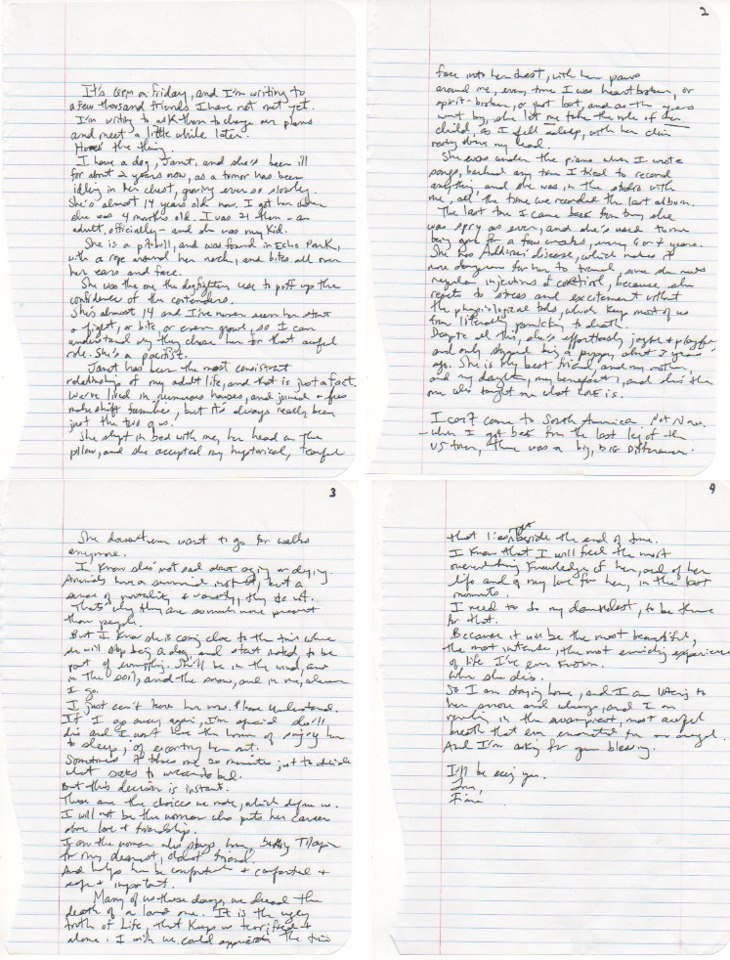 It's 6pm on Friday, and I'm writing to
a few thousand friends I have not met yet.
I'm writing to ask them to change our plans
and meet a little while later.
Here's the thing.
I have a dog, Janet, and she's been ill
for about 2 years now, as a tumor has been
idling in her chest, growing ever so slowly.
She's almost 14 years old now. I got her when
she was 4 months old. I was 21 then – an
adult, officially – and she was my kid.
She is a pitbull, and was found in Echo Park,
with a rope around her neck, and bites all over
her ears and face.
She was the one the dogfighters use to puff up the
confidence of the contenders.
She's almost 14 and I've never seen her start
a fight, or bite, or even growl, so I can
understand why they chose her for that awful
role. She's a pacifist.
Janet has been the most consistent
relationship of my adult life, and that is just a fact.
We've lived in numerous houses, and joined a few
makeshift families, but it's always really been
just the two of us.
She slept in bed with me, her head on the
pillow, and she accepted my hysterical, tearful
2
face into her chest, with her paws
around me, every time I was heartbroken, or
spirit-broken, or just lost, and as the years
went by, she let me take the role of her
child, as I fell asleep, with her chin
resting above my head.
She was under the piano when I wrote
songs, barked any time I tried to record
anything, and she was in the studio with
me, all the time we recorded the last album.
The last time I came back from tour, she
was spry as ever, and she's used to me
being gone for a few weeks, every 6 or 7 years.
She has Addison's disease, which makes it
more dangerous for her to travel, since she needs
regular injections of cortisol, because she
reacts to stress and excitement without
the physiological tools which keep most of us
from literally panicking to death.
Despite all this, she's effortlessly joyful & playful,
and only stopped being a puppy about 3 years
ago. She is my best friend, and my mother,
and my daughter, my benefactor, and she's the
one who taught me what love is.
I can't come to South America. Not Now.
– When I got back from the last leg of the
US tour, there was a big, BIG Difference.
3
She doesn't even want to go for walks
anymore.
I know she's not sad about aging or dying.
Animals have a survival instinct, but a
sense of mortality & vanity, they do not.
That's why they are so much more present
than people.
But I know she is coming close to the time where
she will stop being a dog, and start instead to be
part of everything. She'll be in the wind, and
in the soil, and the snow, and in me, wherever
I go.
I just can't leave her now. Please understand.
If I go away again, I'm afraid she'll
die and I won't have the honor of singing her
to sleep, of escorting her out.
Sometimes it takes me 20 minutes just to decide
what socks to wear to bed.
But this decision is instant.
These are the choices we make, which define us.
I will not be the woman who puts her career
above love & friendship.
I am the woman who stays home, baking Tilapia
for my dearest, oldest friend.
And helps her be comfortable & comforted &
safe & important.
Many of us these days, we dread the
death of a loved one. It is the ugly
truth of Life, that keeps us terrified &
alone. I wish we could appreciate the time
4
that lies right beside the end of time.
I know that I will feel the most
overwhelming knowledge of her, and of her
life and of my love for her, in the last
moments.
I need to do my damnedest, to be there
for that.
Because it will be the most beautiful,
the most intense, the most enriching experience
of life I've ever known.
When she dies.
So I am staying home, and I am listening to
her snore and wheeze, and I am
reveling in the swampiest, most awful
breath that ever emanated from an angel.
And I'm asking for your blessing.
I'll be seeing you.
Love,
Fiona